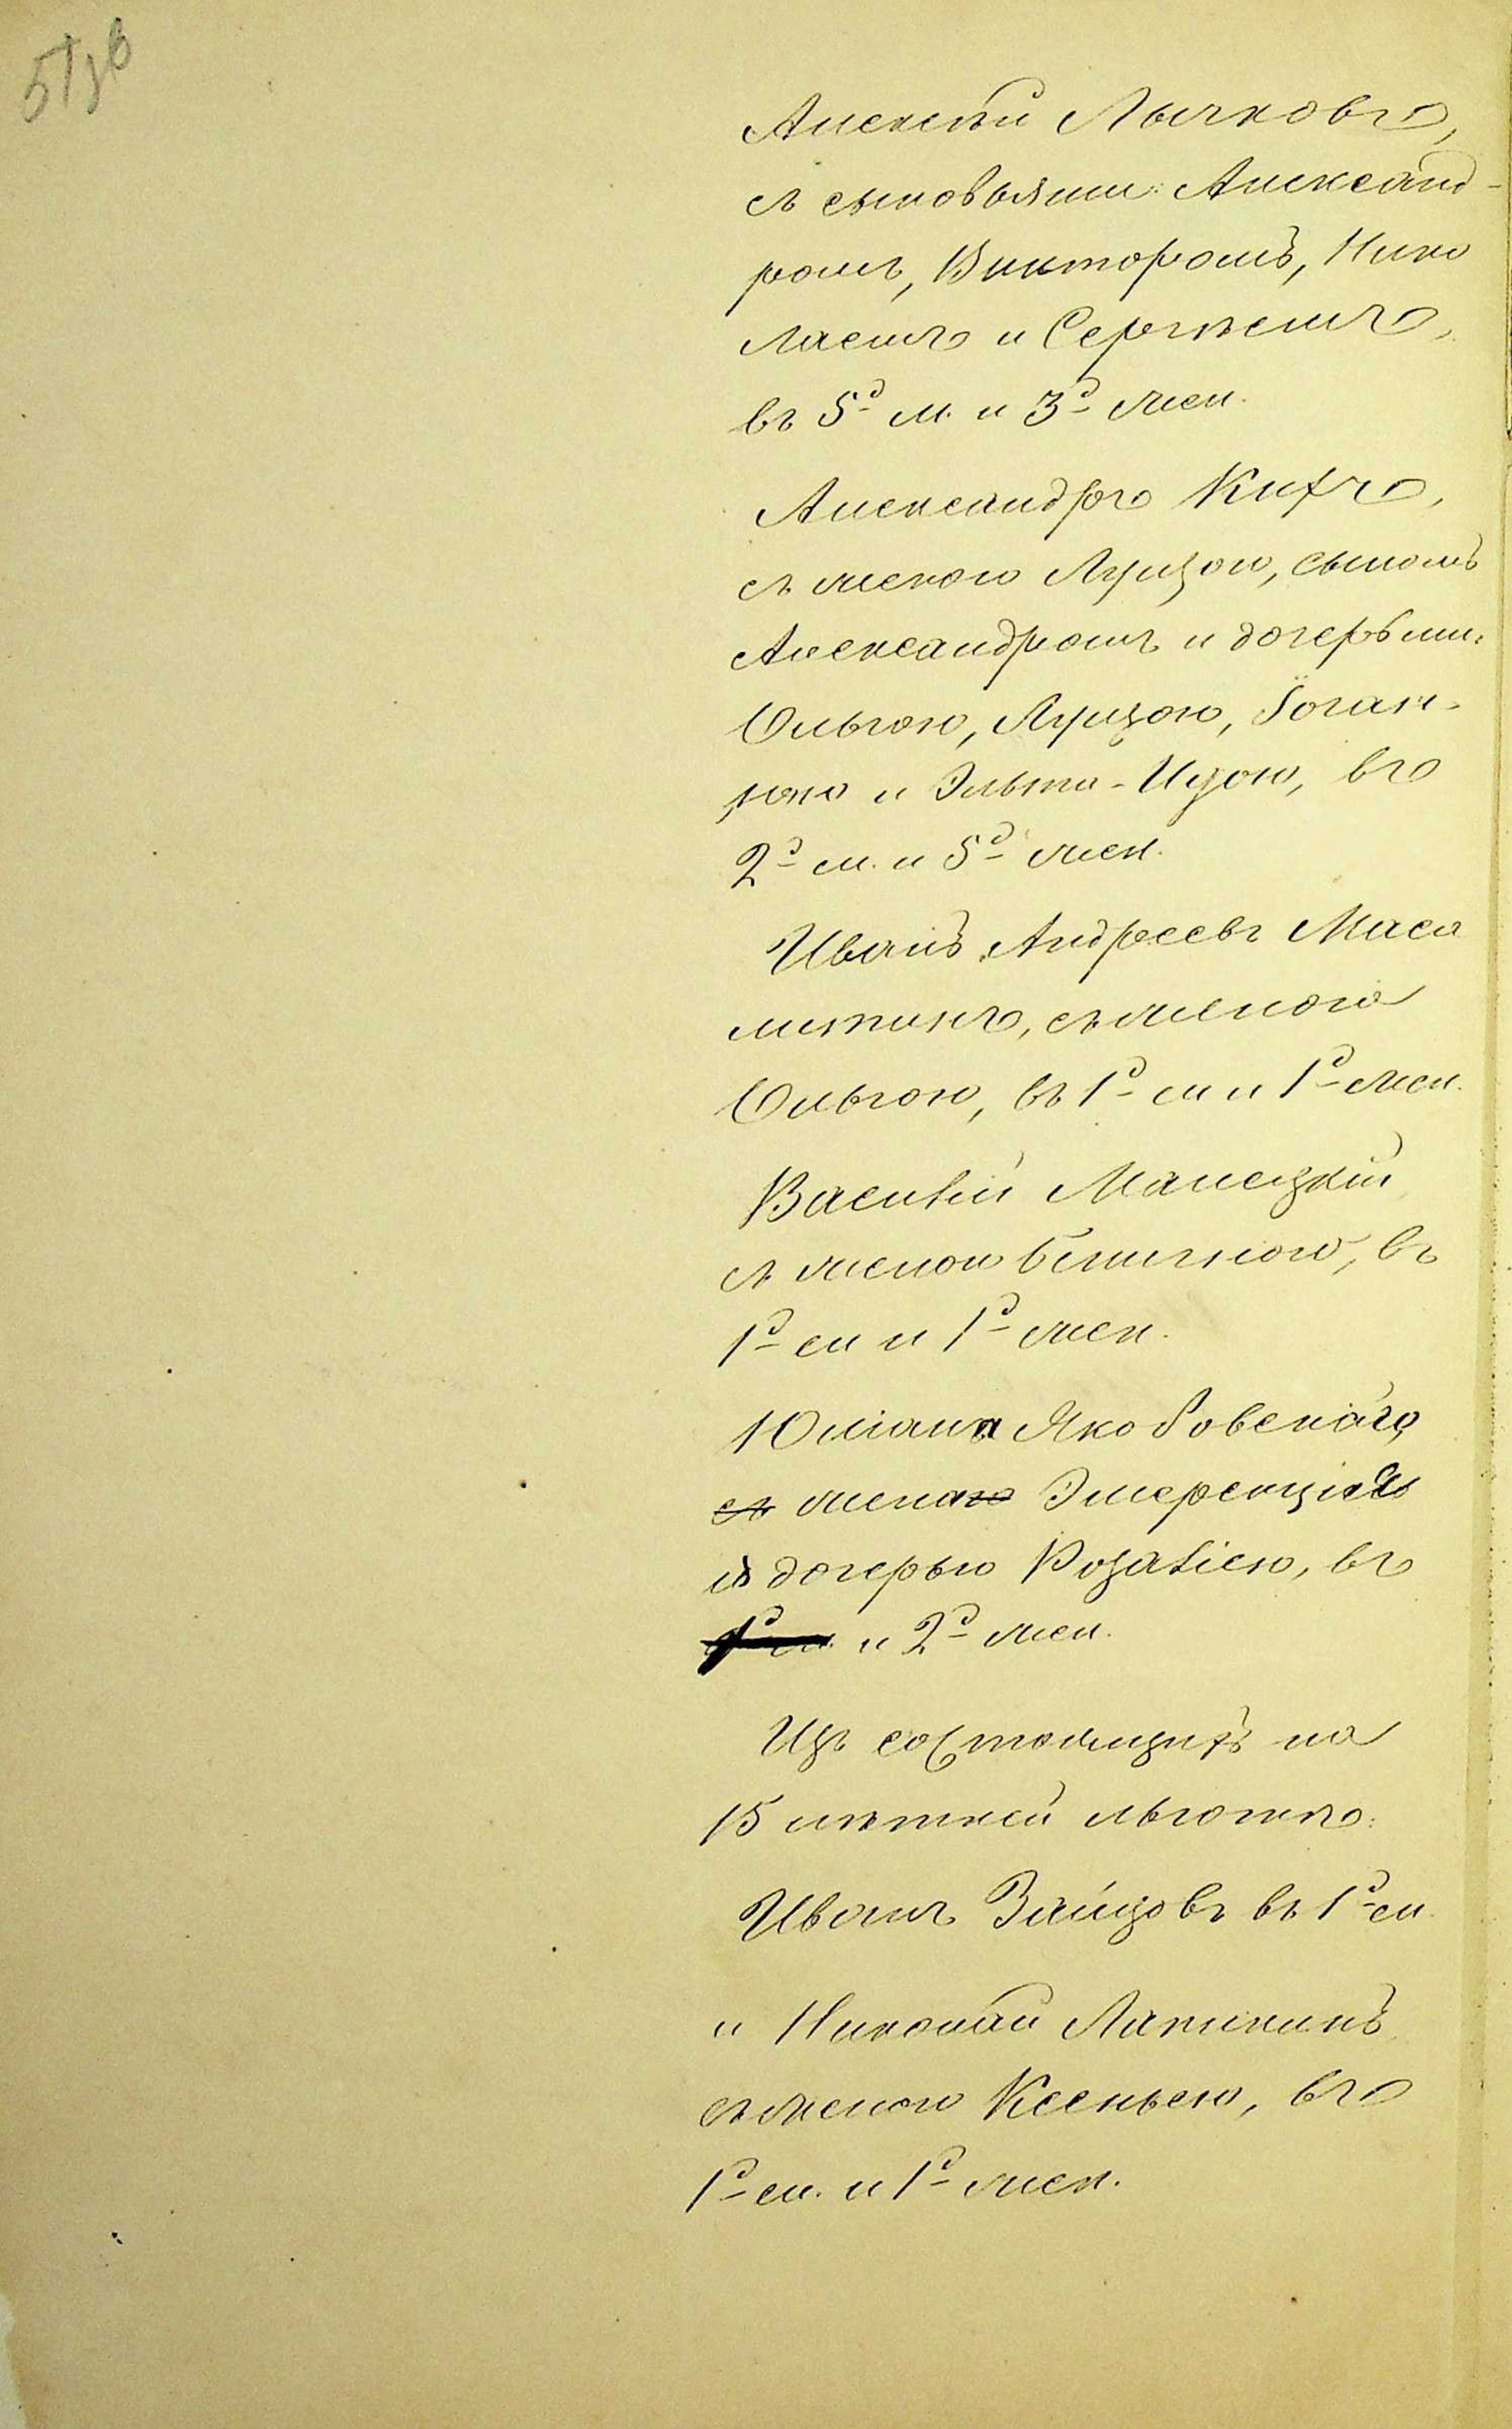 Алексѣй Лычковъ,
съ сыновьями: Александ-
ромъ, Викторомъ, Нико
лаемъ и Сергѣемъ,
въ 5д м. и 3д жен.
Александръ Кихъ,
съ женою Луизою, сыномъ
Александромъ и дочерьми:
Ольгою, Луизою, Іоган-
ною и Эльти-Идою, въ
2д м. и 5д жен.
Иванъ Андреевъ Маса
литинъ, съ женою
Ольгою, въ 1д м и 1д жен.
Василій Малецкій
съ женою, въ
1д м и 1д жен.
Юліана Якобовскаго,
съ жена Эмеренція
съ дочерью Розаліею, въ
1д м. и 2д жен.
Изъ состоящихъ на
15 лѣтней льготѣ:
Иванъ Зайцовъ въ 1д м
и Николай Лапшинъ
съ женою Ксеньею, въ
1д м. и 1д жен.